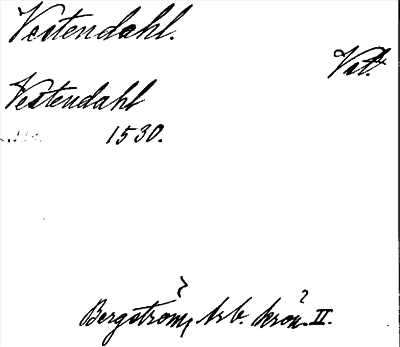 Vestendahl.
Vstl.
Vestendahl
1530.
Bergström, Arb. krön. II.